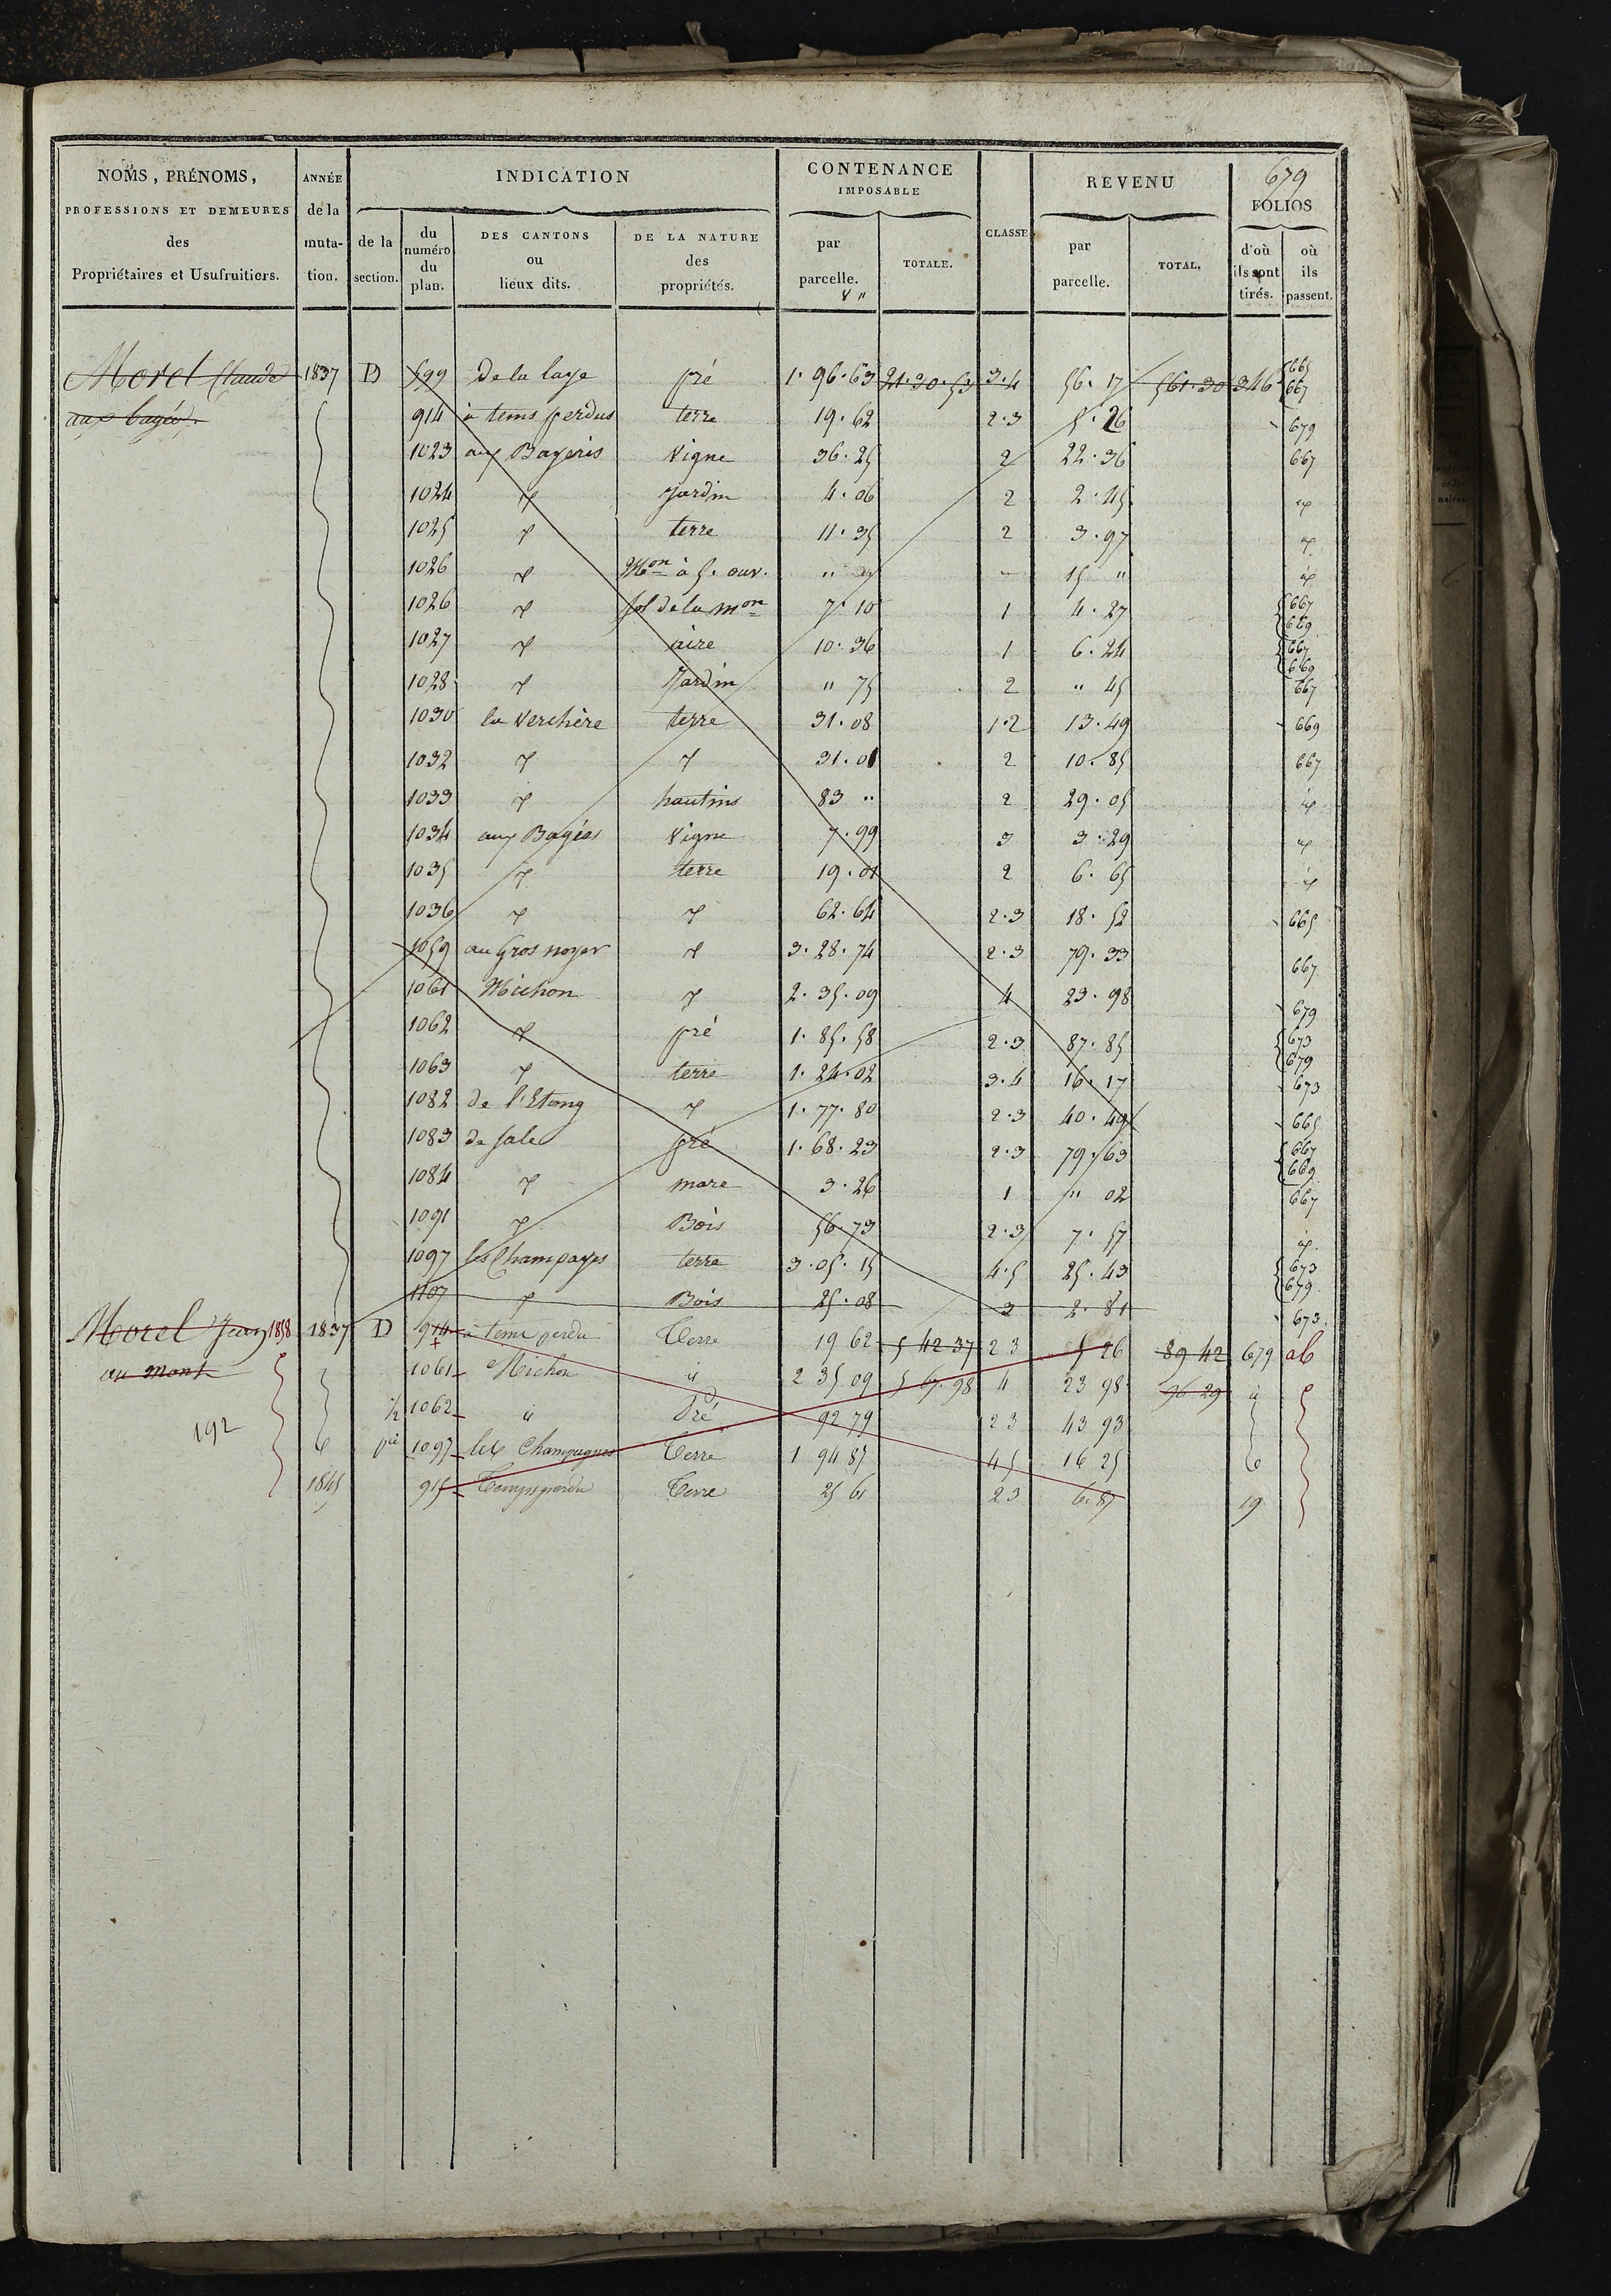 679
NOMS, PRÉNOMS, PROFESSIONS ET DEMEURES des Propriétaires et Usufruitiers. ANNÉE de la muta- tion. INDICATION de la section. du numéro du plan. DES CANTONS ou lieux dits. DE LA NATURE des propriétés. CONTENANCE IMPOSABLE par parcelle. TOTALE. CLASSE REVENU par parcelle. TOTAL. FOLIOS d'où ils sont tirés. où ils passent.
Morel Claude 1837 D 599 De la laye pré 1. 96. 63 21. 30. 53 3. 4 56. 17 561. 30 346 665 667
aux bagés. 914 à tems perdus terre 19. 62 2. 3 5. 26 679
1023 aux Bageris Vigne 36. 25 2 22. 36 667
1024 Jardin 4. 06 2 2. 45
1025 terre 11. 35 2 3. 97
1026 Mon à 5. ouv. " " 15 "
1026 sol de la mon 7. 10 1 4. 27 667 669
1027 aire 10. 36 1 6. 24 667 669
1028 Jardin " 75 2 " 45 667
1030 la Verchère terre 31. 08 1. 2 13. 49 669
1032 31. 01 2 10. 85 667
1033 hautins 83 " 2 29. 05
1034 aux Bagés Vigne 7. 99 3 3. 29
1035 terre 19. 01 2 6. 65
1036 62. 64 2. 3 18. 52 665
1059 au Gros noyer 3. 28. 74 2. 3 79. 33 667
1061 Michon 2. 35. 09 4 23. 98 679
1062 pré 1. 85. 58 2. 3 87. 85 673 679
1063 terre 1. 24. 02 3. 4 16. 17 673
1082 de l'Etang 1. 77. 80 2. 3 40. 49 665
1083 de sale pré 1. 68. 23 2. 3 79. 63 667 669
1084 mare 3. 26 1 " 02 667
1091 Bois 56. 73 2. 3 7. 57
1097 les Champagnes terre 3. 05. 15 4. 5 25. 43 673 679
1107 Bois 25. 08 2 2. 81 673
Morel Jean 1858 1837 D 914 à tems perdu Terre 19 62 5 42 37 2 3 5 26 89 42 679 ab
au mont 1061 Michon id 2 35 09 5 67. 98 4 23 98 96 29 id
192 1/2 1062 id Pré 92 79 2 3 43 93
pie 1097 les Champagnes Terre 1 94 87 4 5 16 25
1845 915 Temps perdu Terre 25 61 2 3 6. 87 19